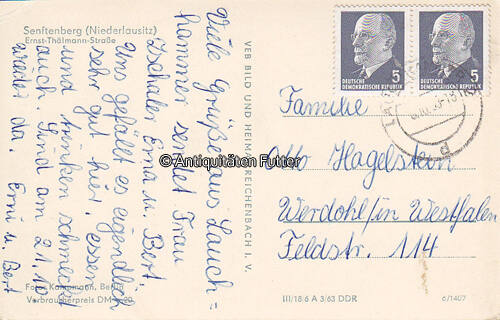 Senftenberg (Niederlausitz)
Ernst-Thälmann-Straße
Viele Grüße aus Lauch-
hammer sendet Frau
Zschaler Erna u. Bert.
Uns gefällt es eigendlich
sehr gut hier. essen
und trinken schmeckt
auch. Sind am 21.10
wieder da. Erni u. Bert
Foto: Kampmann, Berlin
Verbraucherpreis DM 0.20
VEB BILD UND HEIMAT REICHENBACH I. V.
© Antiquitäten Futter
5
DEUTSCHE
DEMOKRATISCHE REPUBLIK
5
DEUTSCHE
DEMOKRATISCHE REPUBLIK
d
Familie
Otto Hagelstein
Werdohl/in Westfalen
Feldstr. 114
III/18 6 A 3/63 DDR
6/1407